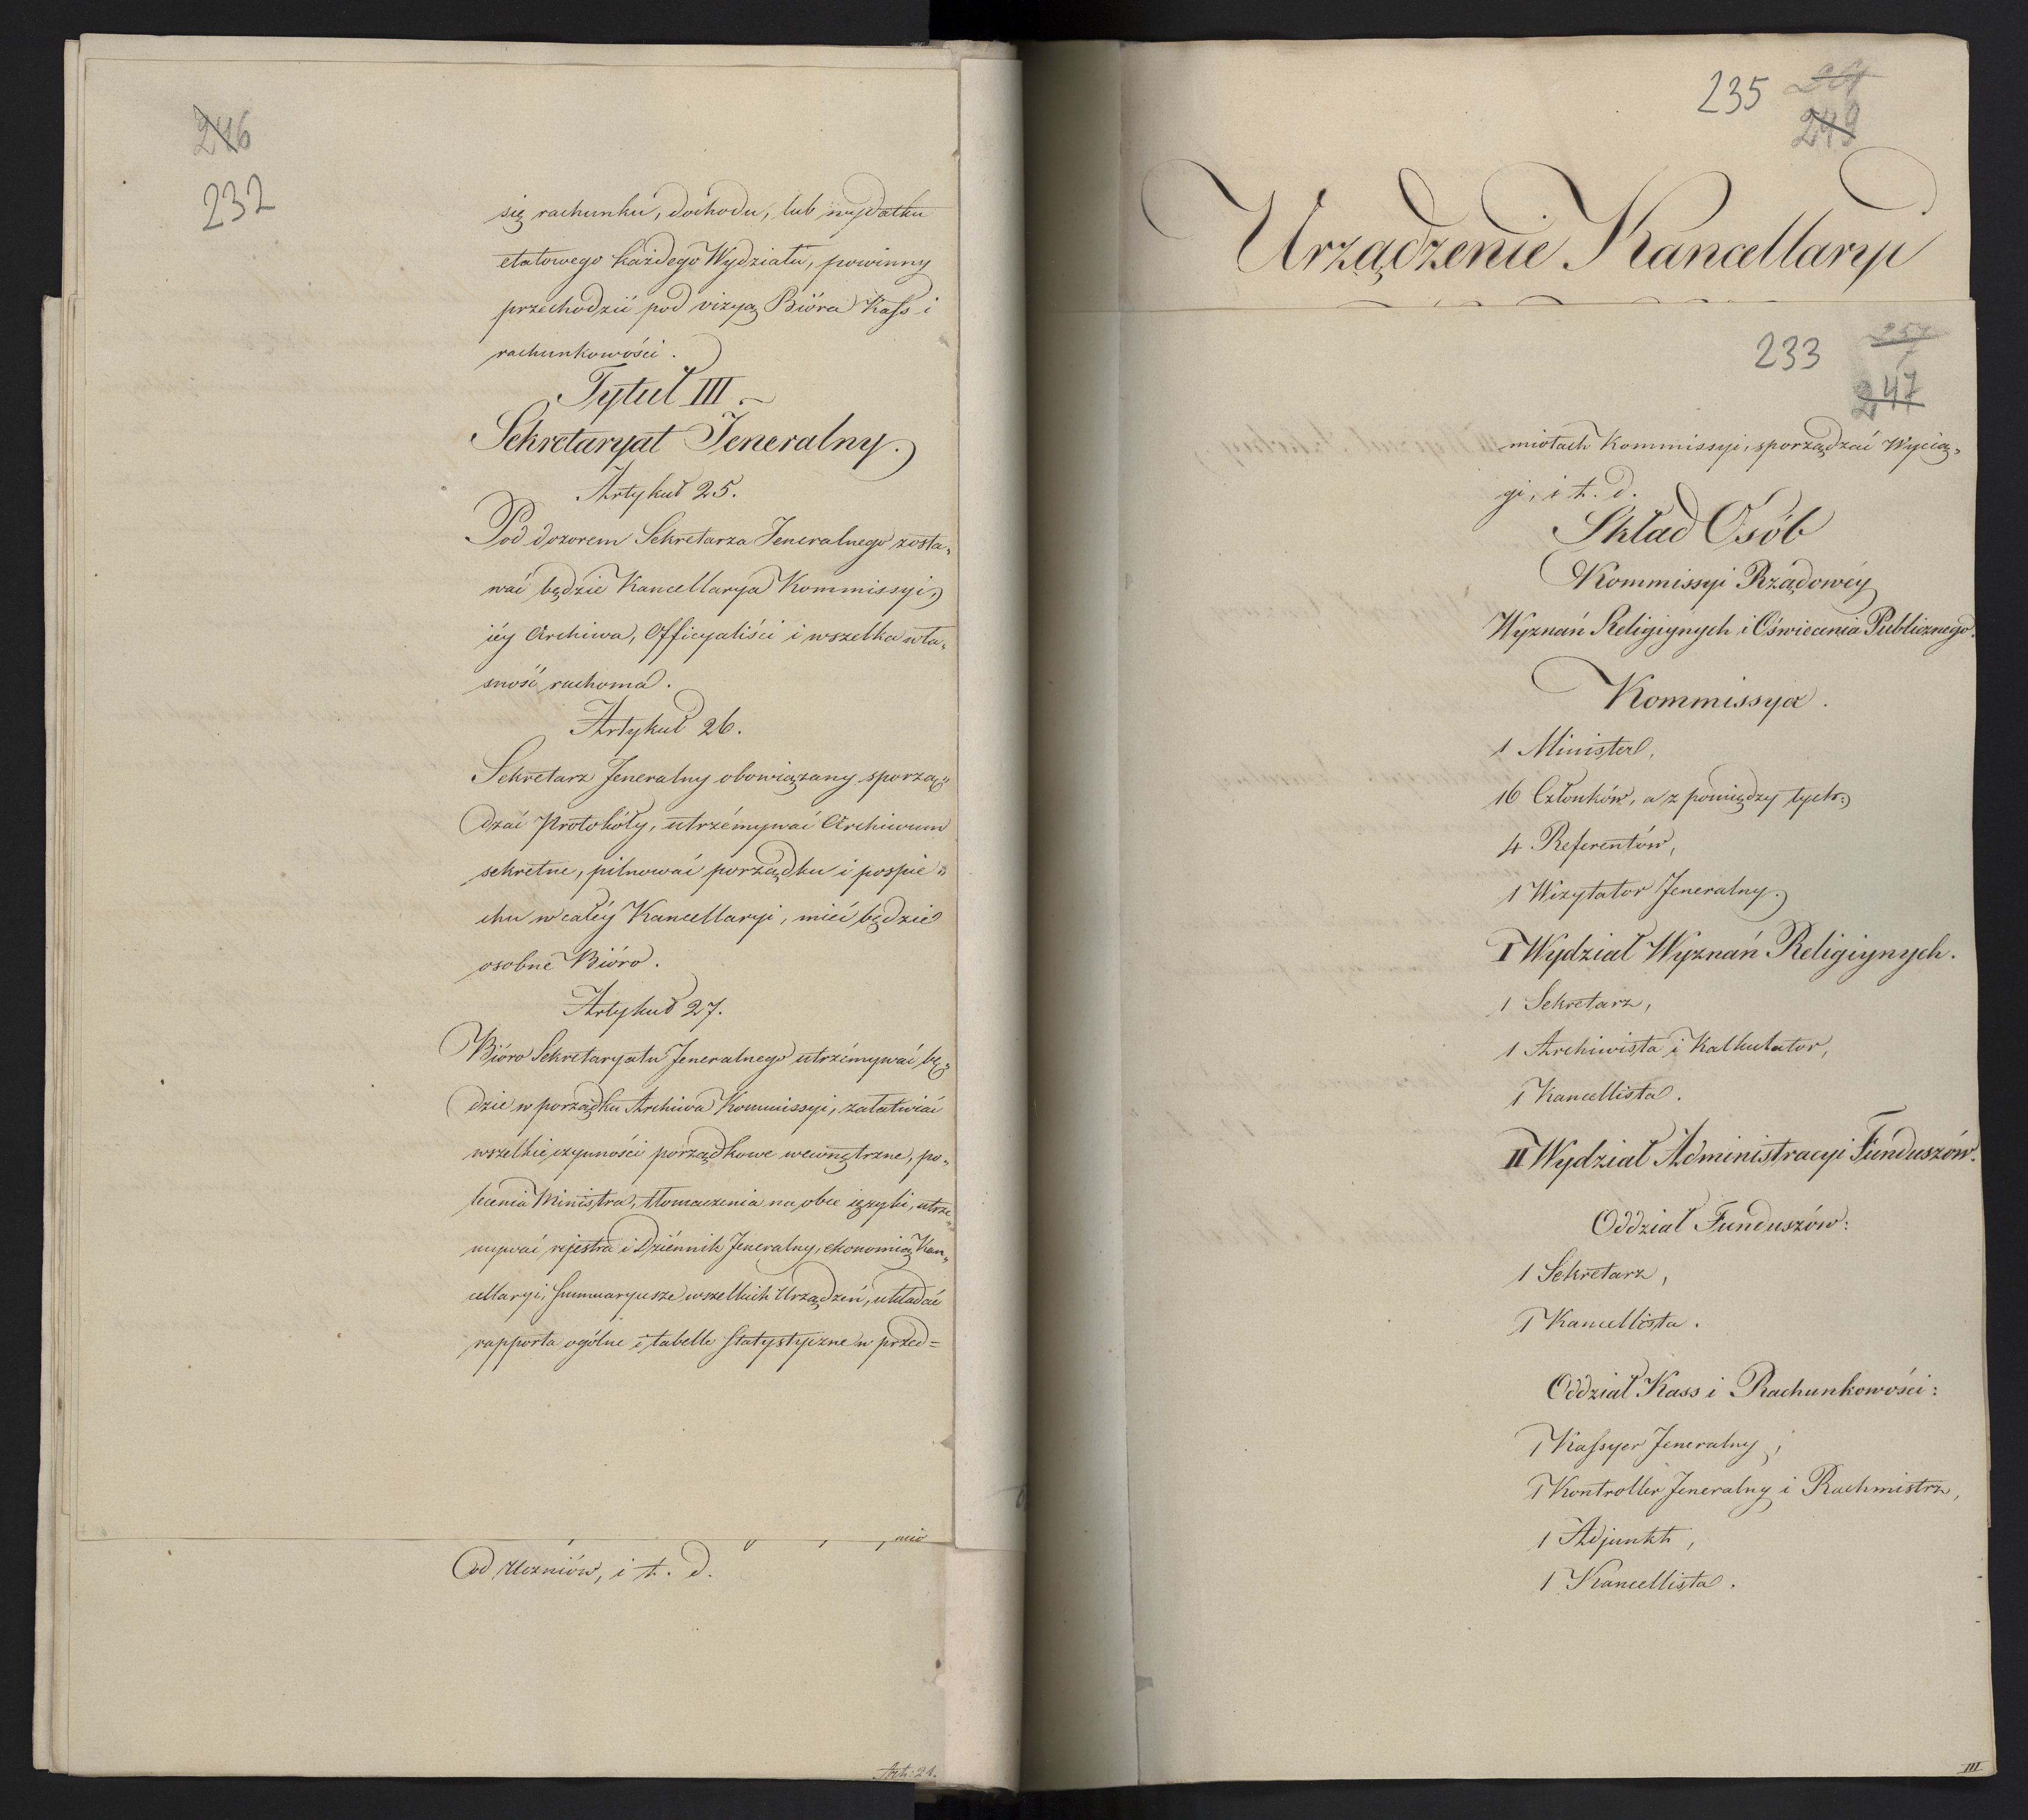 246
232
się rachunku, dochodu, lub wydatku
etatowego każdego Wydziału, powinny
przechodzić pod vizyą Bióra Kass i
rachunkowości.
Tytuł III
Sekretaryat Jeneralny.
Artykuł 25.
Pod dozorem Sekretarza Jeneralnego zosta„
wać będzie Kancellarya Kommissyi,
iéy Archiwa, Officyaliści i wszelka wła„
sność ruchoma.
Artykuł 26.
Sekretarz Jeneralny obowiązany sporzą„
dzać Protokóły, utrzémywać Archiwum
sekretne, pilnować porządku i pospie„
chu w całéy Kancellaryi, mieć będzie
osobne Bióro.
Artykuł 27.
Bióro Sekretaryatu Jeneralnego utrzémywać bę„
dzie w porządku Archiwa Kommissyi, załatwiać
wszelkie czynności porządkowe wewnętrzne, po„
lecenia Ministra, tłomaczenia na obce ięzyki, utrzé„
mywać rejestra i Dziénnik Jeneralny, ekonomią Kan„
cellaryi, summaryusze wszelkich Urządzeń, układać
rapporta ogólne i tabelle statystyczne w przed=
mio
od Uczniów, i t. d.
Art: 21.
235
249
Urządzenie Kancellaryi
233
257
247
miotach Kommissyi, sporządzać Wycią„
gi, i t. d.
Skład Osób
Kommissyi Rządowéy
Wyznań Religiynych i Oświecenia Publicznego.
Kommissya.
1 Minister,
16 Członków, a z pomiędzy tych:
4 Referentów,
1 Wizytator Jeneralny.
I Wydział Wyznań Religiynych.
1 Sekretarz,
1 Archiwista i Kalkulator,
1 Kancellista.
II Wydział Administracyi Funduszów.
Oddział Funduszów:
1 Sekretarz,
1 Kancellista.
Oddział Kass i Rachunkowości:
1 Kassyer Jeneralny,
1 Kontroller Jeneralny i Rachmistrz,
1 Adjunkt,
1 Kancellista.
III